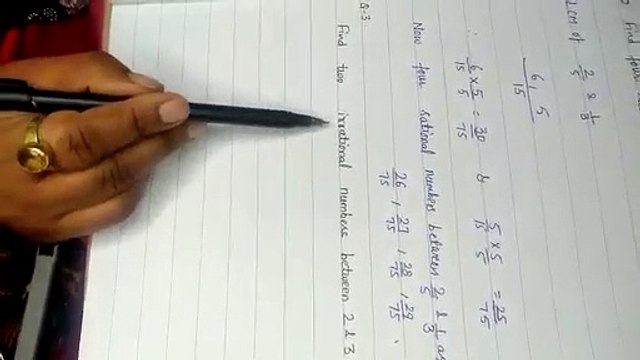 find four
LCM of 2/5 & 1/3
6, 5 / 15
∴ 6/15 × 5/5 = 30/75 & 5/15 × 5/5 = 25/75
Now four rational numbers between 2/5 & 1/3 as
26/75 , 27/75 , 28/75 , 29/75 .
Q-3
Find two irrational numbers between 2 & 3